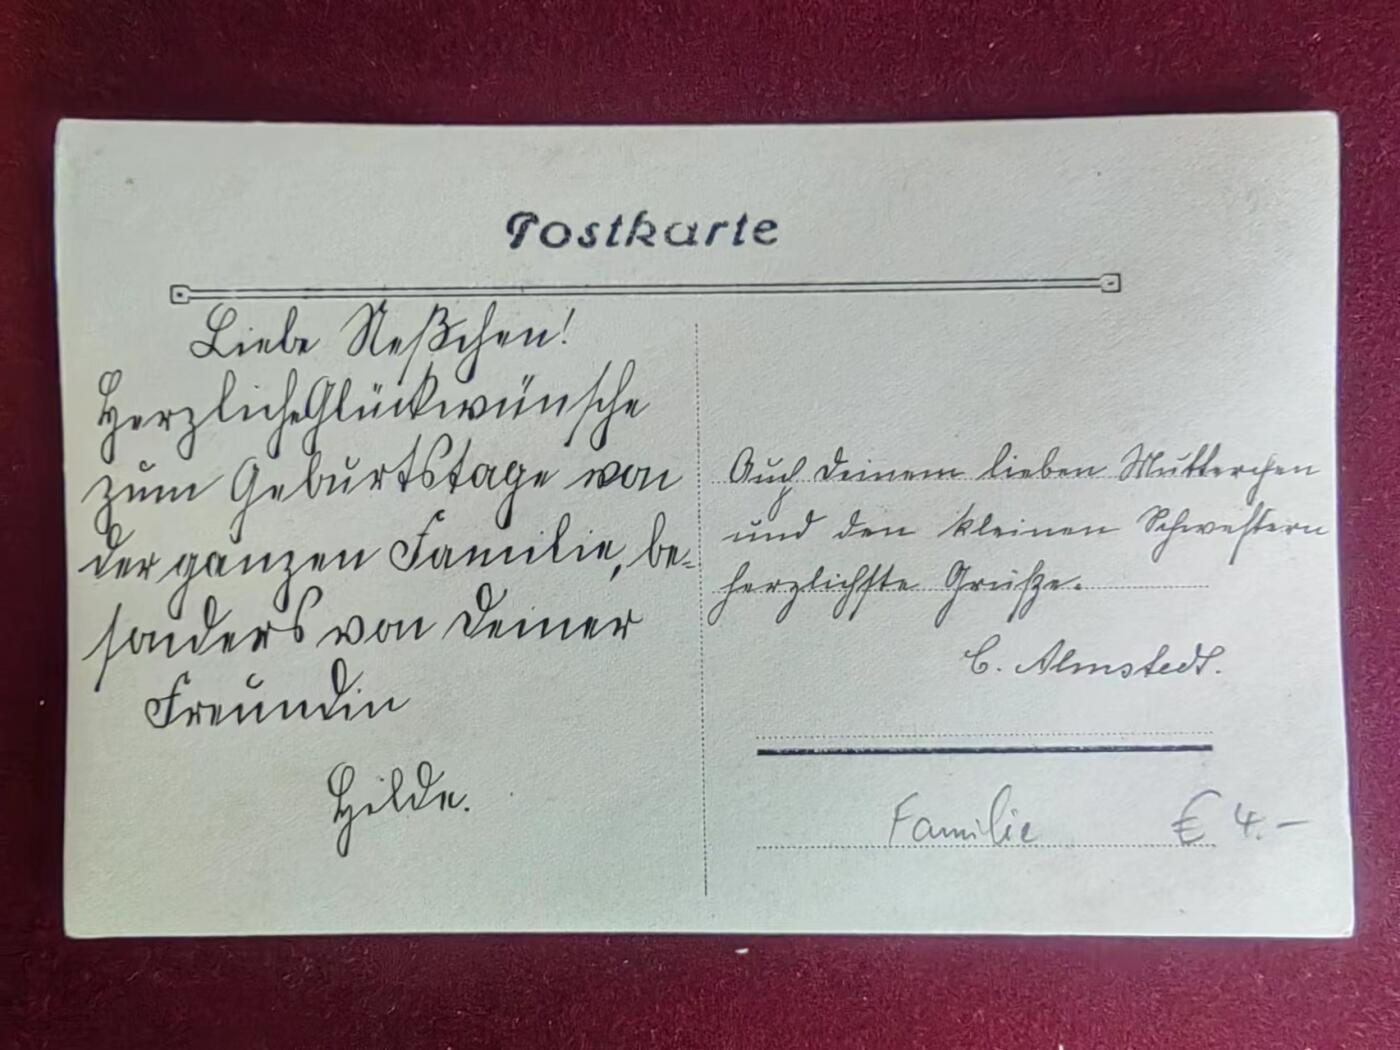 Postkarte
Liebe Neßchen!
Herzliche Glückwünsche
zum Geburtstage von
der ganzen Familie, be-
sonders von Deiner
Freundin
Hilde.
Auch Deinem lieben Mutterchen
und den kleinen Schwestern
herzlichste Grüße.
C. Almstedt.
Familie € 4.-